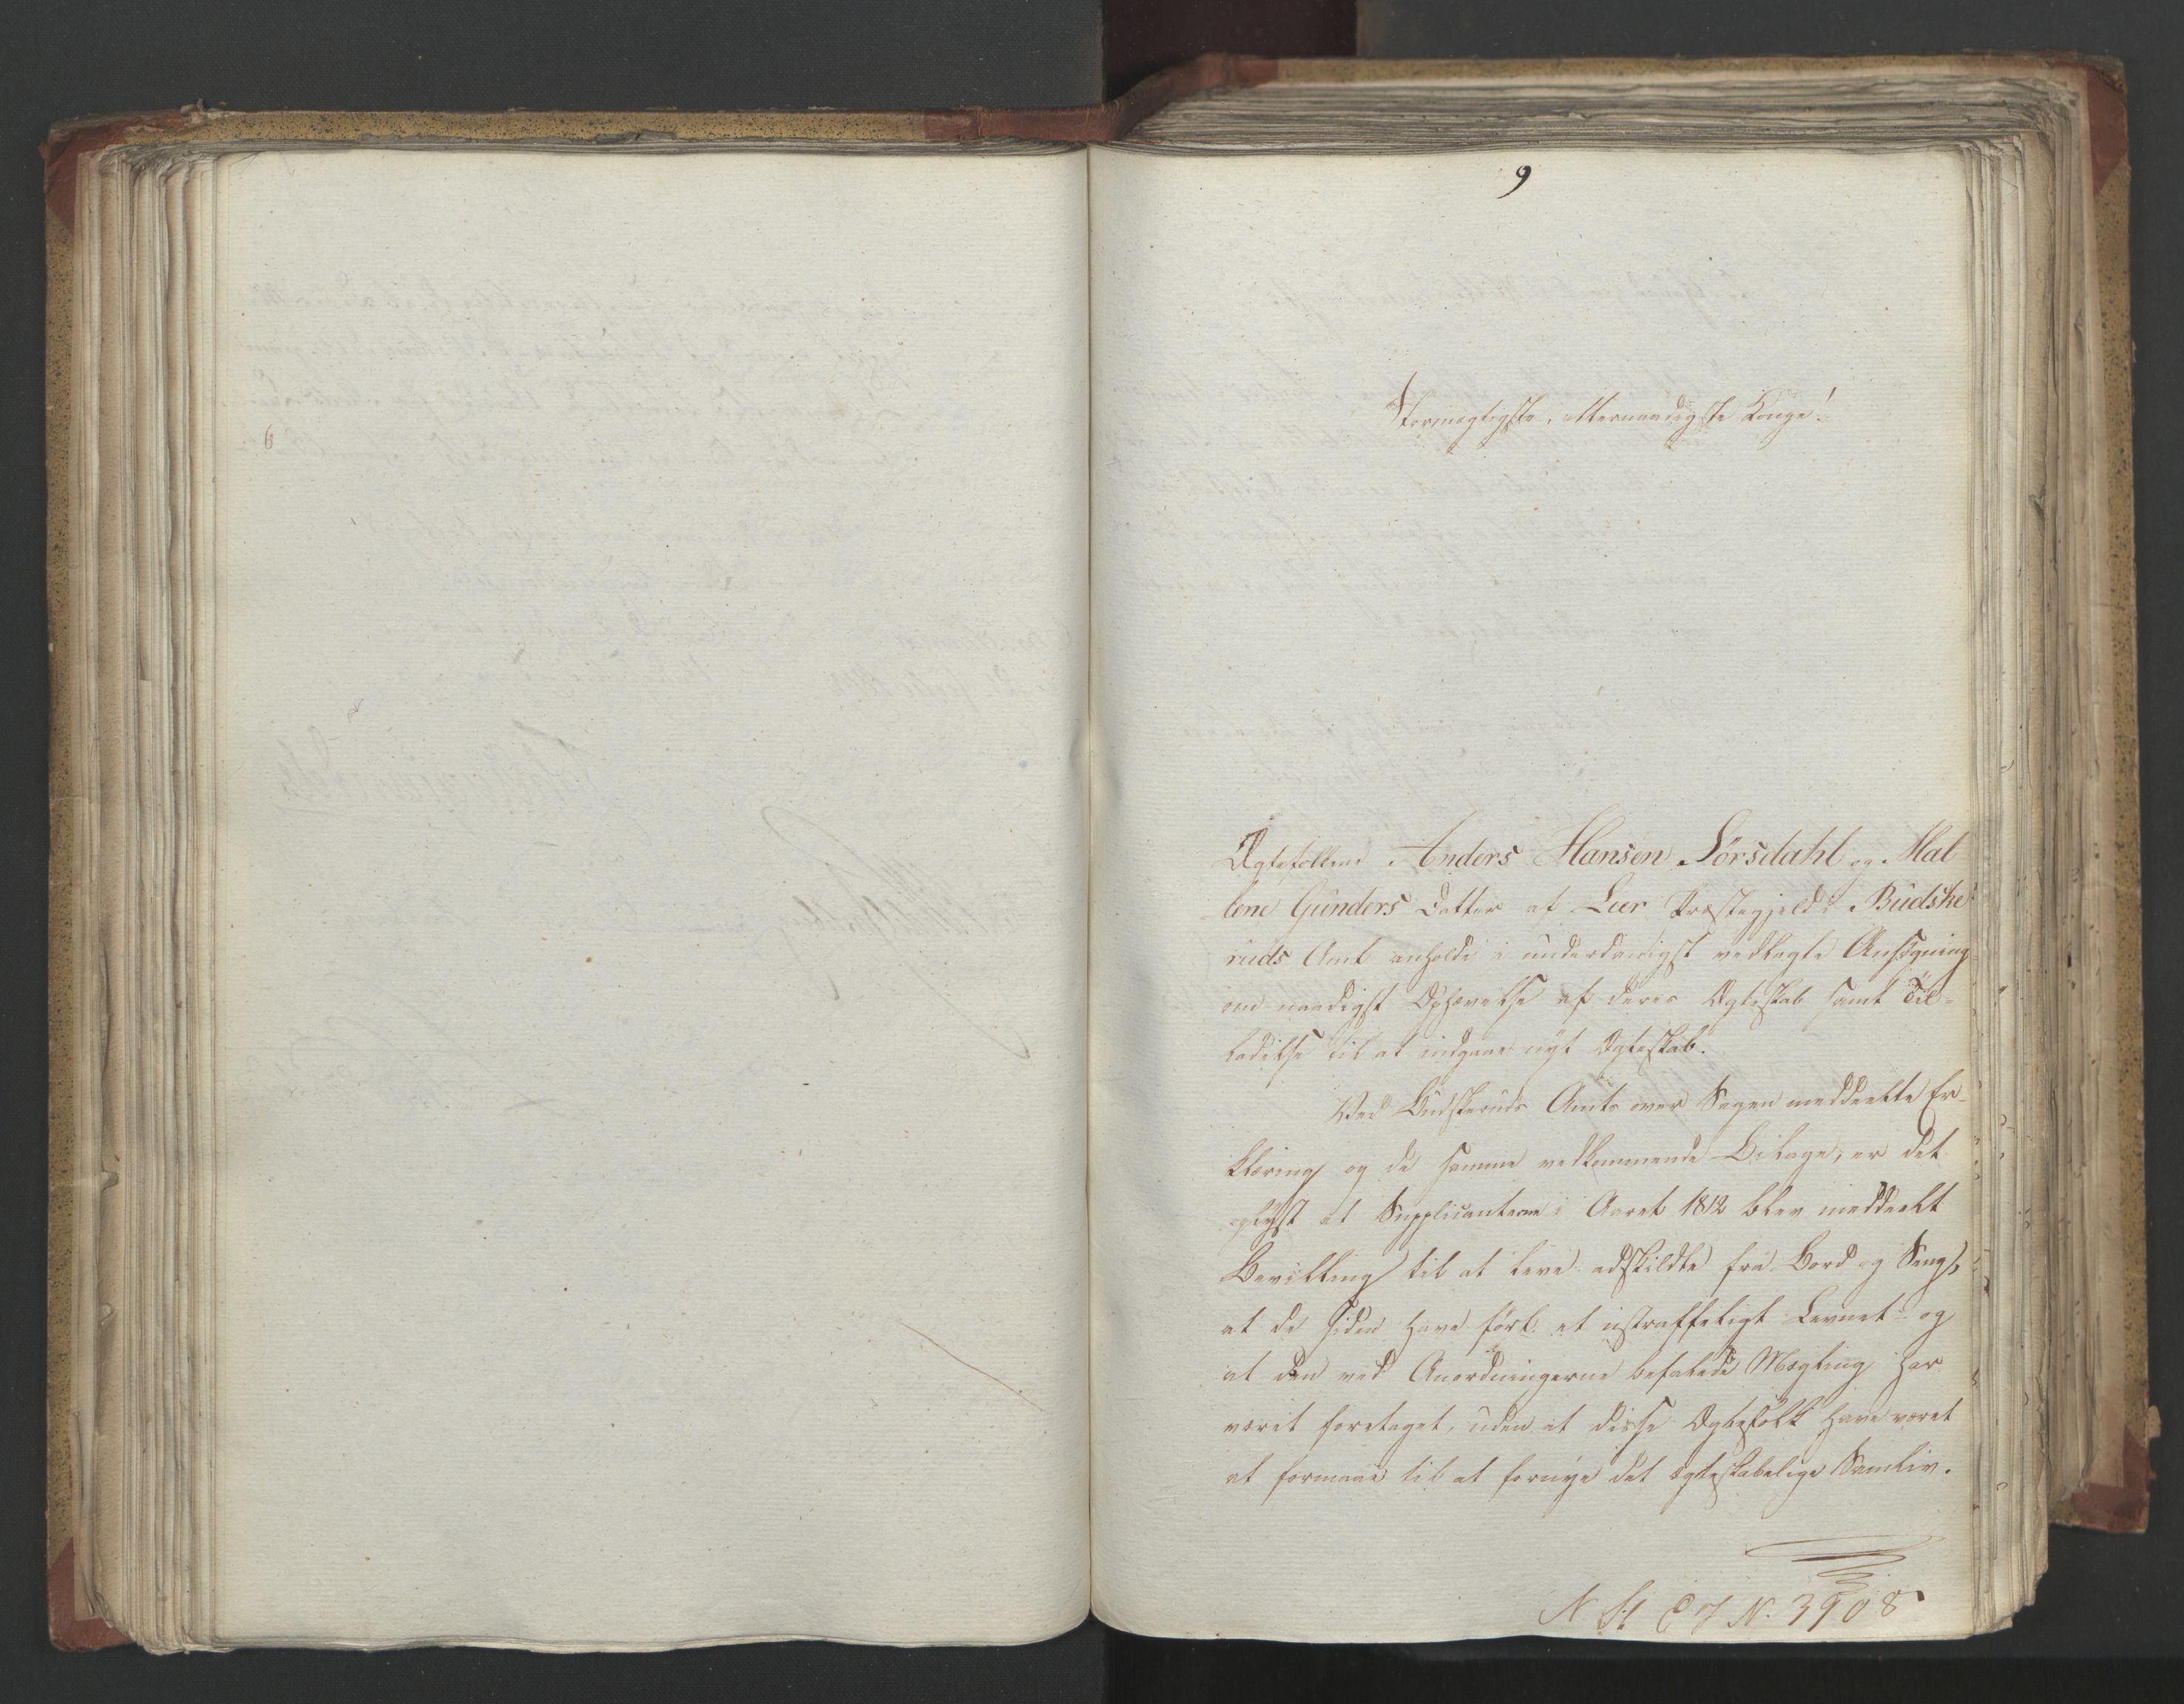 9
Stormægtigste, allernaadigste Konge!
Ægtefolkene Anders Hansen Sørsdahl og Mal
lene Gunders Datter af Lier Præstegjeld i Budske
ruds Amt anholde i underdanigst vedlagte Ansøgning
om naadigst Ophævelse af deres Ægteskab samt Til-
ladelse til at indgaae nyt Ægteskab.
Ved Budskeruds Amts over Sagen meddeelte Er-
klæring og de samme vedkommende Bilage, er det
oplyst at Supplicanterne i Aaret 1812 blev meddeelt
Bevilling til at leve adskildte fra Bord og Seng,
at de siden have ført et ustraffeligt Levnet og
at den ved Anordningerne befalede Mægling har
værit foretaget, uden at disse Ægtefolk have været
at formaae til at fornye det ægteskabelige Samliv.
N. 3908